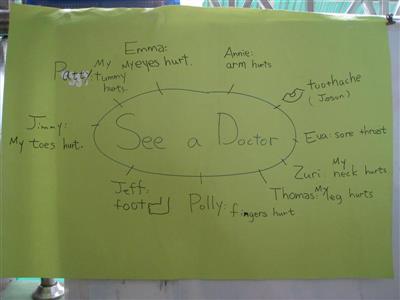 Emma:
My eyes hurt.
Annie:
arm hurts
Patty
My
tummy
hurts.
toothache
(Jason)
Jimmy:
My toes hurt.
See a Doctor
Eva: sore throat
Zuri: My
neck hurts
Jeff:
foot
Polly: fingers hurt
Thomas: My leg hurts